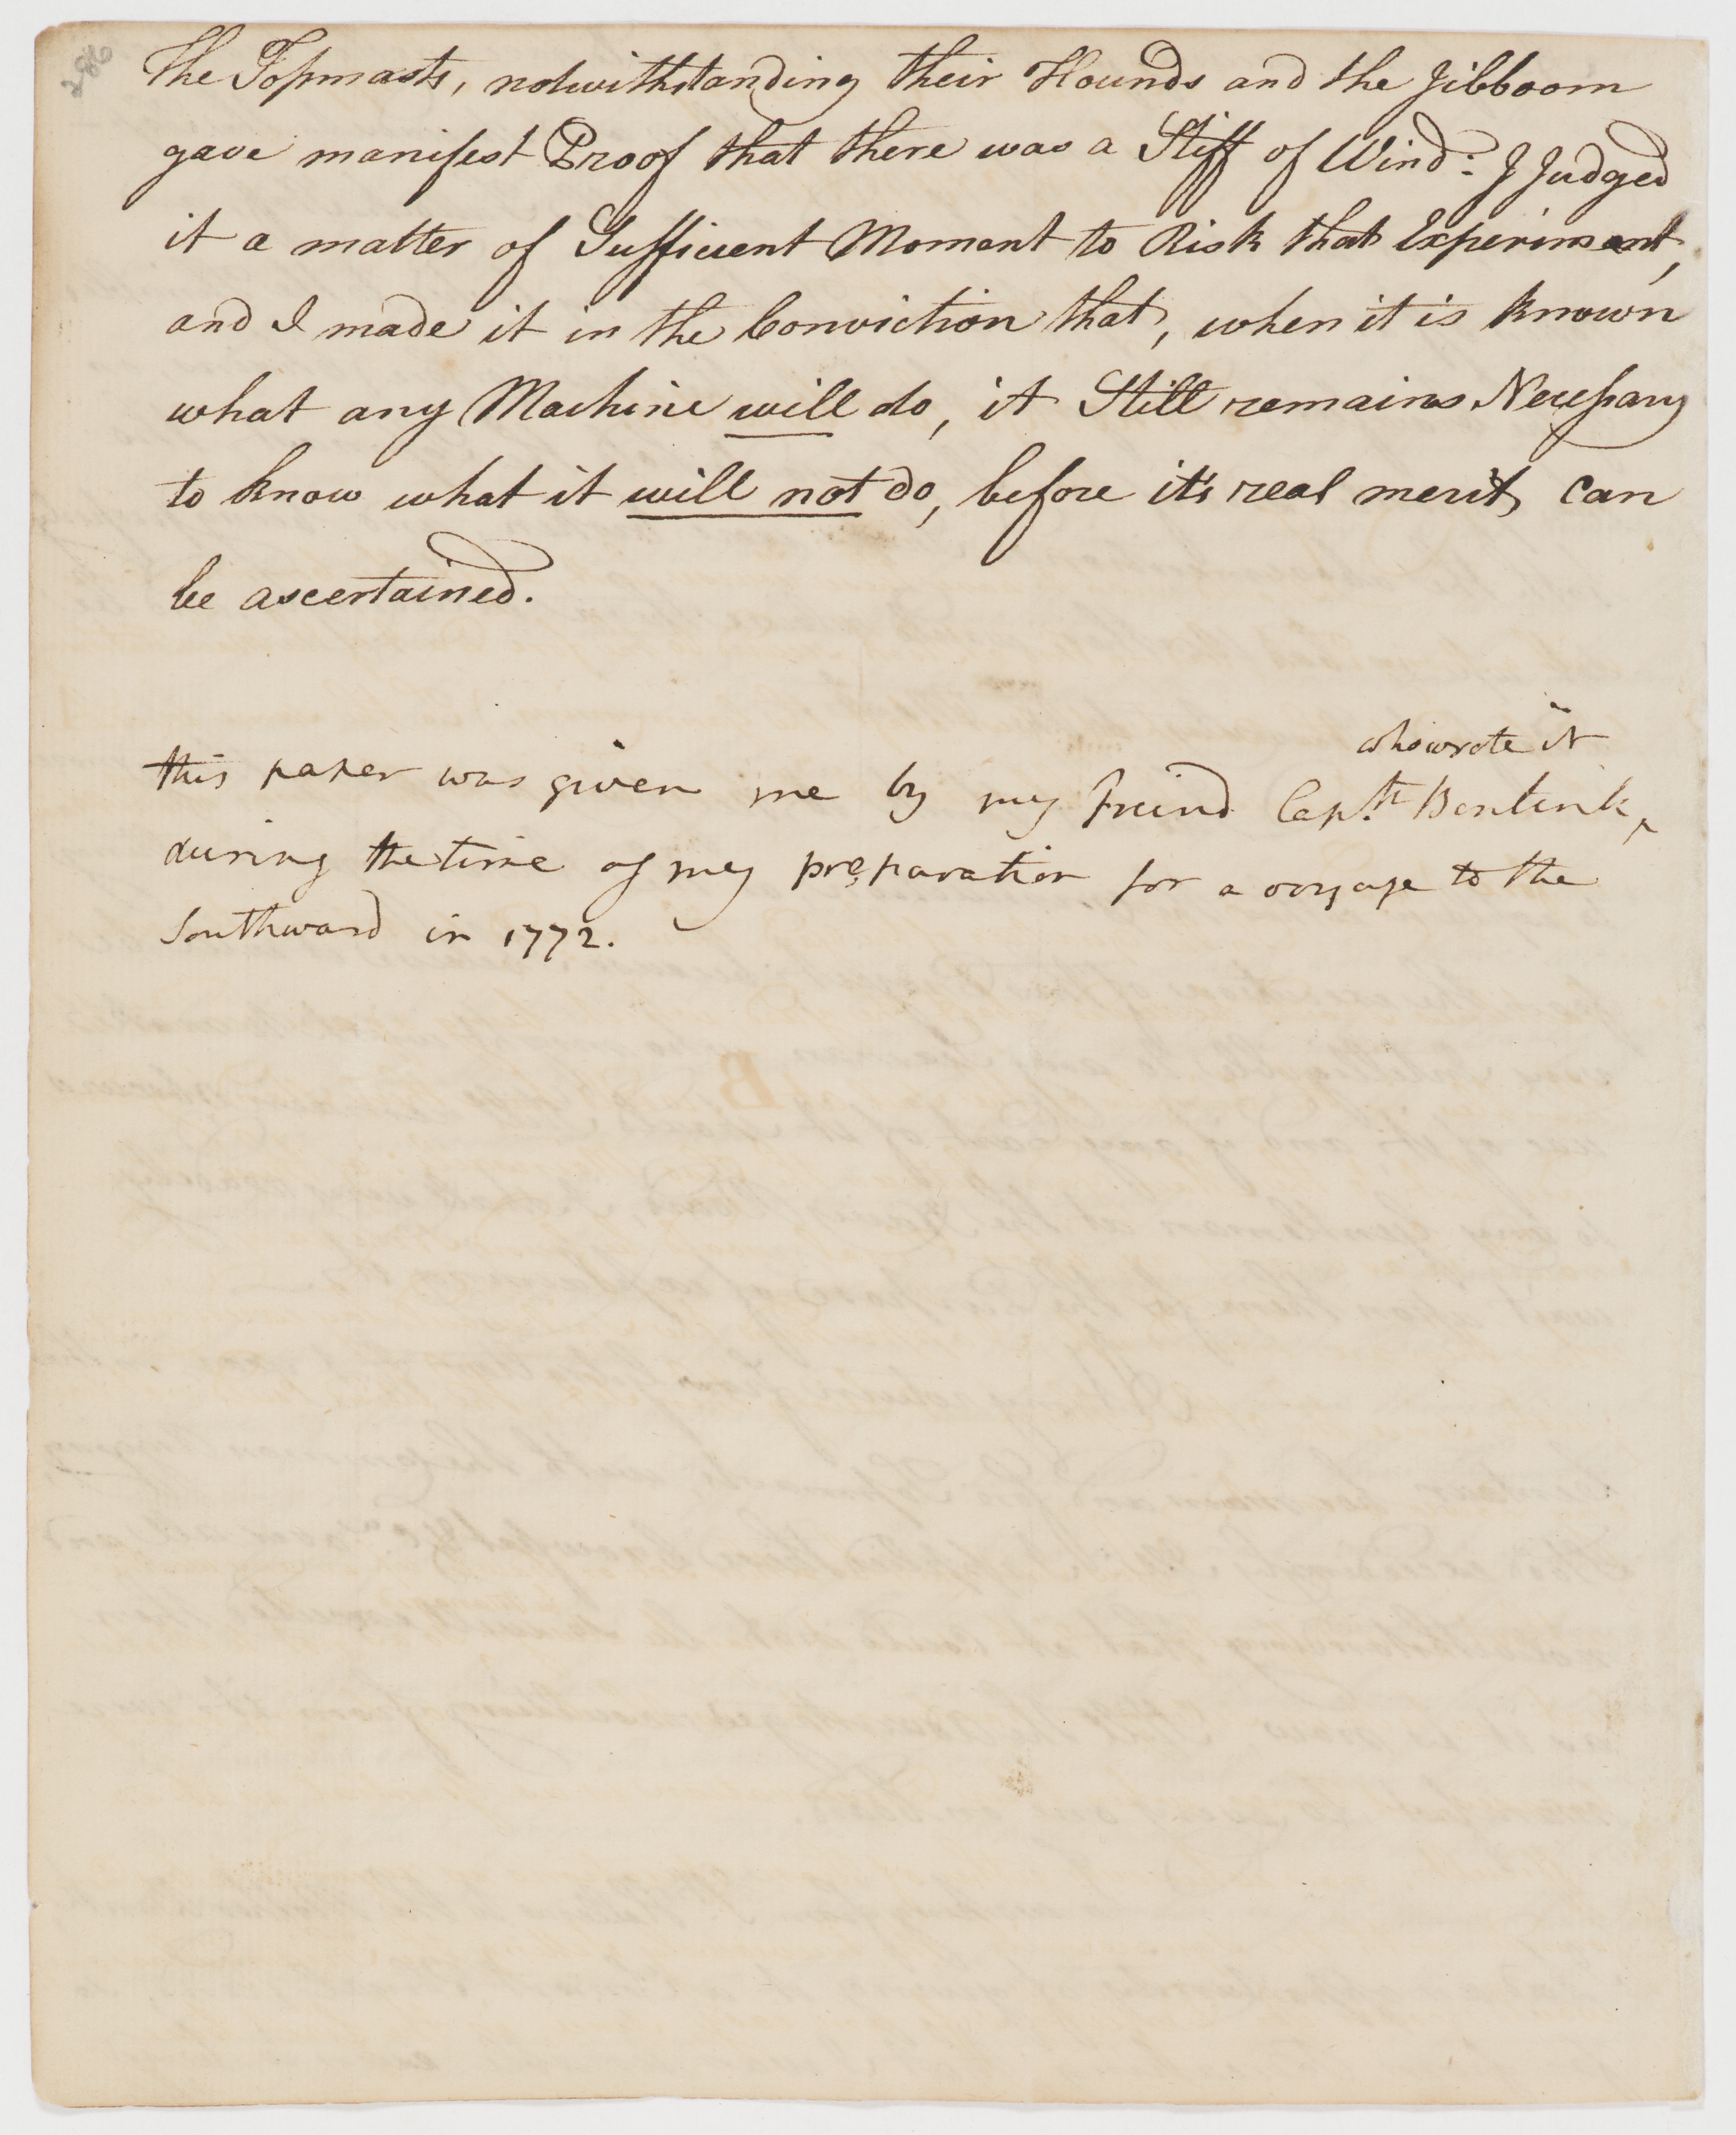 The Topmasts, notwithstanding their Hounds and the Jibboom
gave manifest Proof that there was a Stiff of Wind: I Judged
it a matter of Sufficient Moment to Risk that Experiment,
and I made it in the Conviction that, when it is known
what any Machine will do, it Still remains Necessary
to know what it will not do, before it's real merit can
be ascertained.
who wrote it
this paper was given me by my freind Captn Bentink ‸
during the time of my preparation for a voyage to the
Southward in 1772.